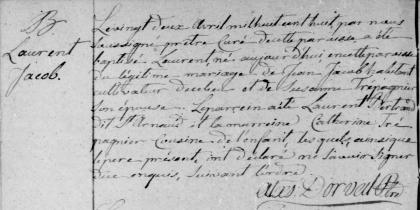 B
Laurent
Jacob.
Le vingt deux Avril mil huit cent huit par nous
soussigné prêtre Curé de cette paroisse, a été
baptisé Laurent, né aujourd'hui en cette paroisse
du légitime mariage de Jean Jacob habitant
cultivateur de ce lieu et de Susanne Trépagnier
son épouse. Le parrein a été Laurent Bertrand
dit St Arnaud et la marreine Catherine Tré-
pagnier Cousine de l'enfant lesquels, ainsi que
le père présent, ont déclaré ne savoir signer
de ce enquis, suivant l'ordre
Alexs. Dorval Ptre